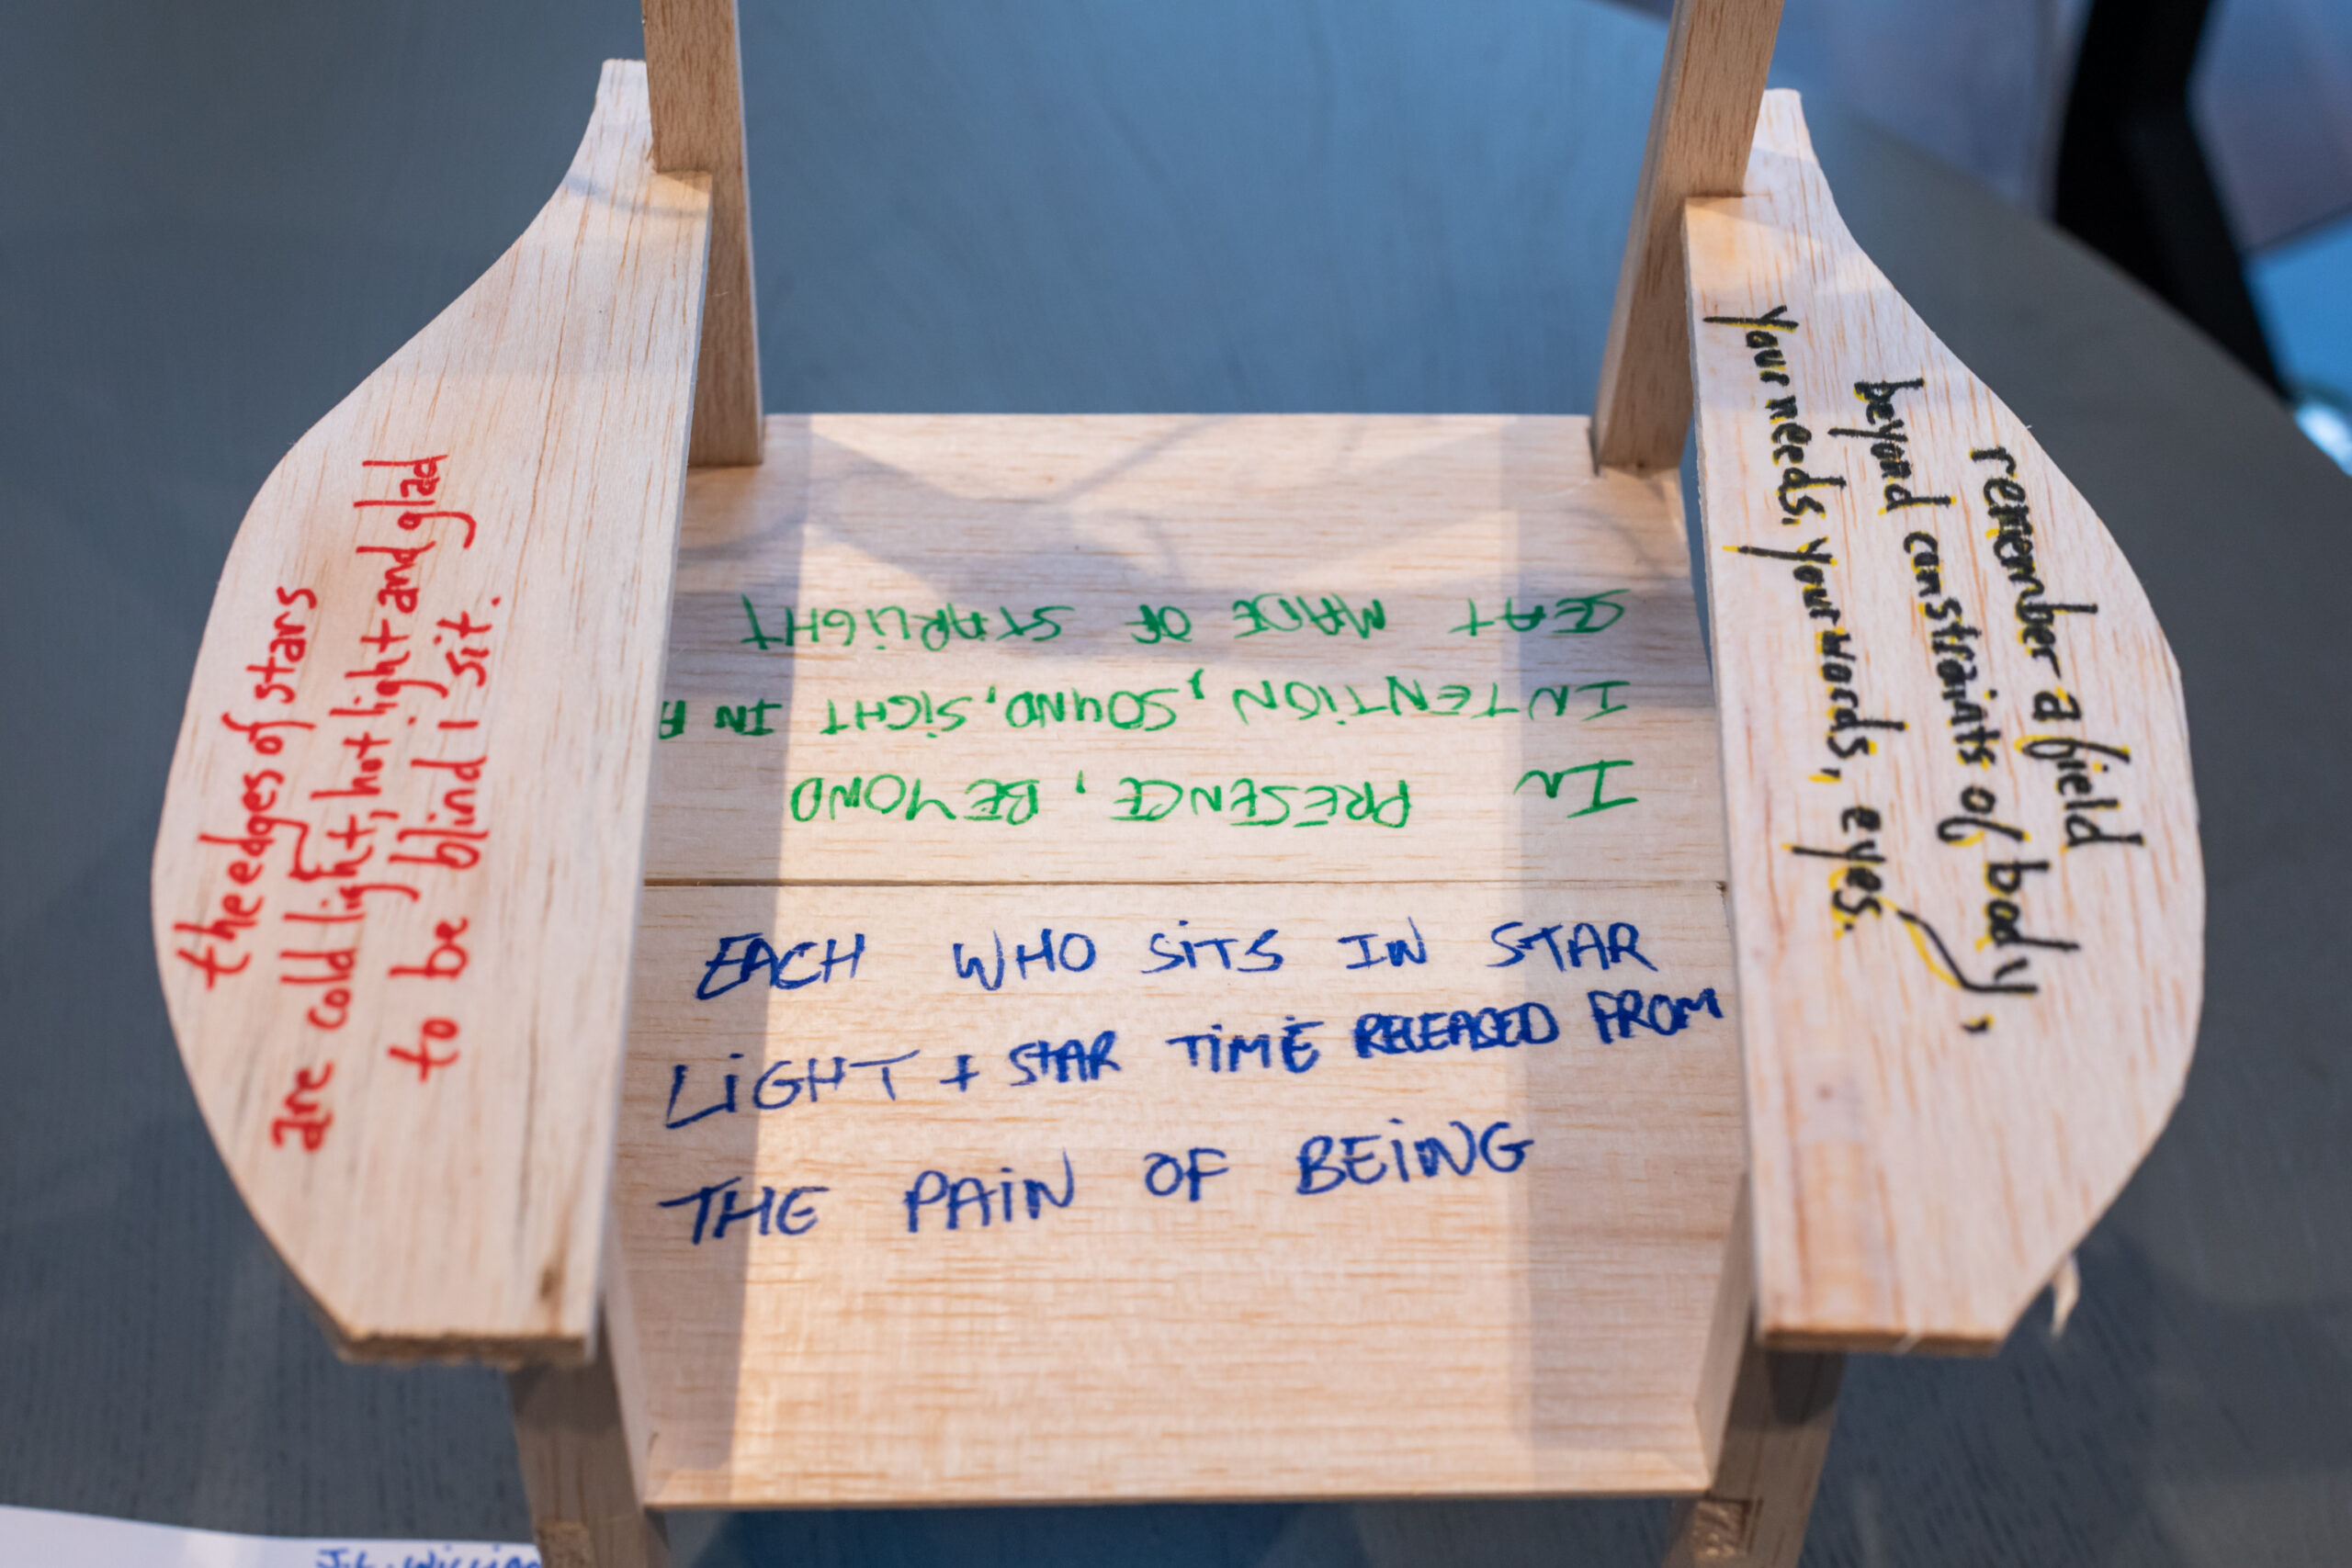 the edges of stars
are cold light, hot light and glad
to be blind I sit.
IN PRESENCE, BEYOND
INTENTION, SOUND, SIGHT IN A
SEAT MADE OF STARLIGHT
EACH WHO SITS IN STAR
LIGHT + STAR TIME RELEASED FROM
THE PAIN OF BEING
remember a field
beyond constraints of body,
your needs, your words, eyes.
J.L. WILLIAM